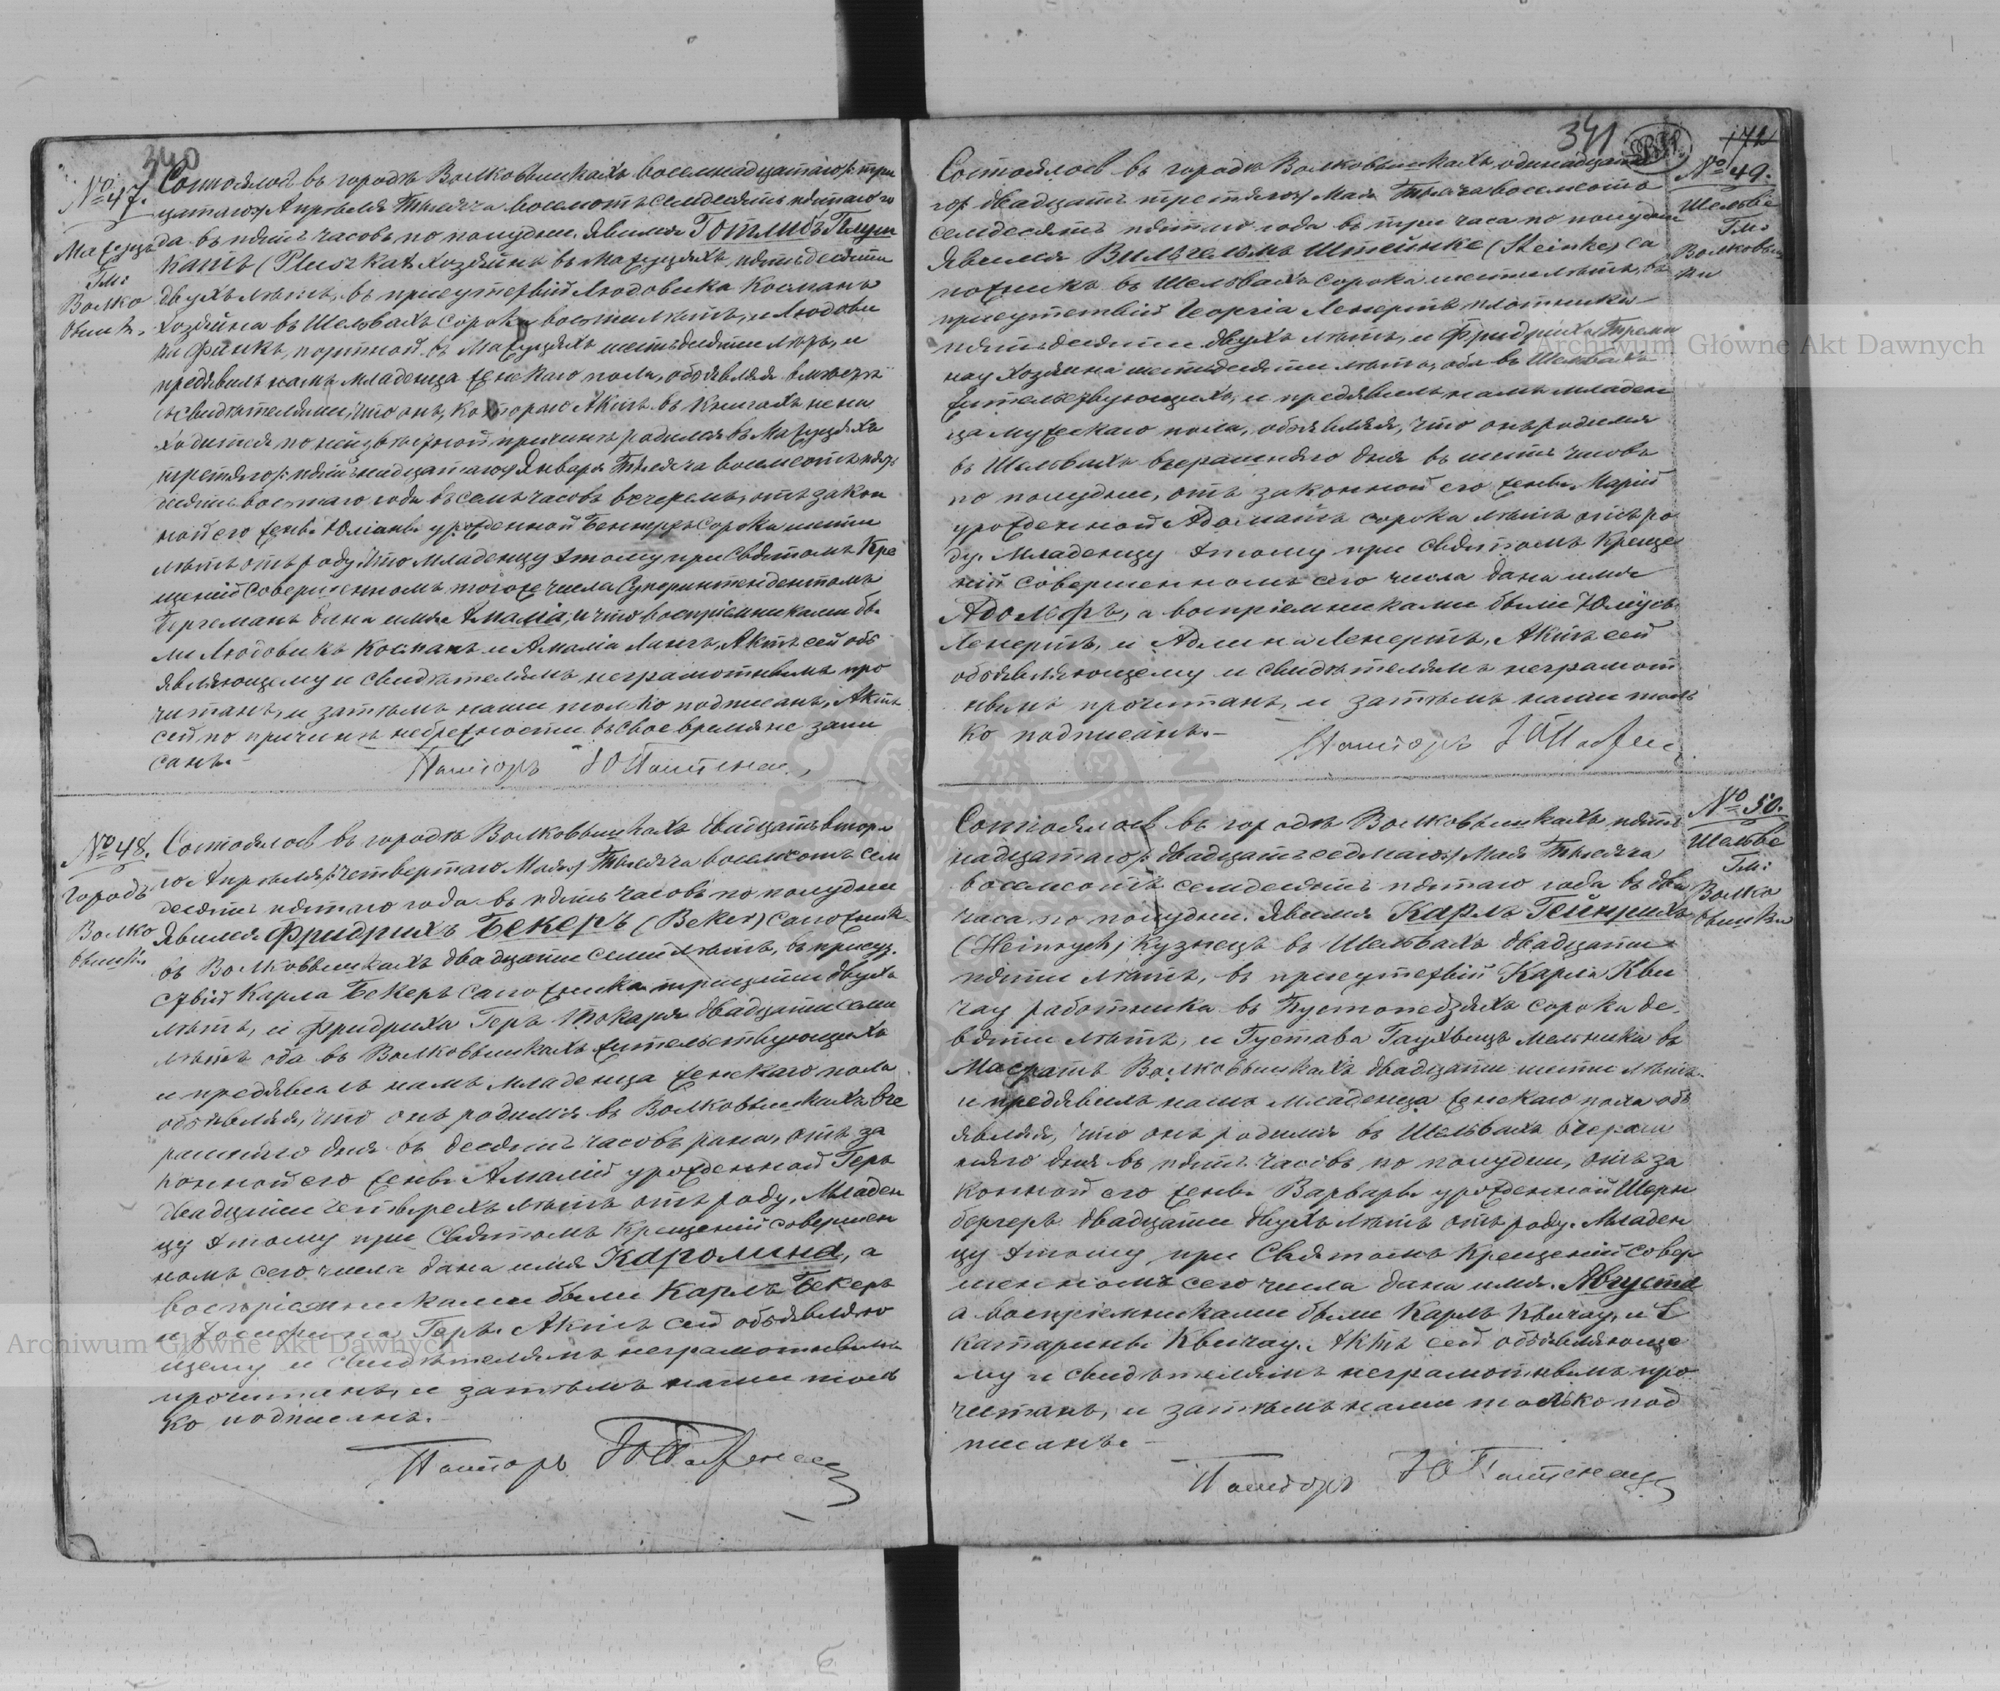 340
№ 47.
Мазуцы
Гм:
Волко
вышки.
Состоялось въ городѣ Волковышкахъ восемнадцатаго/: трид
цатаго/ Апрѣля Тысяча восемьсотъ семдесятъ пятаго го
да въ пять часовъ по полудни. Явился Готлибъ Плуш
катъ (Pluszkat) хозяинъ въ Мазуцяхъ, пятьдесяти
двухъ лѣтъ, въ присутствіи Людовика Косманъ
хозяина въ Шельвахъ сорока восьми лѣтъ, и Людови
ка Финкъ, портной въ Мазуцяхъ шестьдесяти лѣтъ, и
предъявилъ намъ младенца женскаго пола, объявляя вмѣстѣ
съ свидѣтелями, что онъ, котораго Актъ въ книгахъ не на
ходится по неизвѣстной причинѣ родился въ Мазуцяхъ
третьяго/: пятнадцатаго/ Января Тысяча восемьсотъ пять
десятъ восьмаго года въ семь часовъ вечеромъ, отъ закон
ной его жены Юліаны урожденной сорока шести
лѣтъ отъ роду. Что младенцу этому при Святомъ Кре
щеніи совершенномъ того же числа Суперинтендентомъ
Бергеманъ дана имя Амалія, и что воспріемниками бы
ли Людовикъ Косманъ и Амалія Лангъ, Актъ сей объ
являющему и свидѣтелямъ неграмотнымъ про
читанъ, и затѣмъ нами только подписанъ, Актъ
сей по причинѣ небрежности въ свое время не запи
санъ.
Пасторъ
№ 48.
Городъ
Волко
вышки.
Состоялось въ городѣ Волковышкахъ двадцать втора
го Апрѣля/: четвертаго Мая/ Тысяча восемьсотъ сем
десятъ пятаго года въ пять часовъ по полудни
Явился Фридрихъ Бекеръ (Beker) сапожникъ
въ Волковышкахъ двадцати семи лѣтъ, въ присут
ствіи Карла Бекеръ сапожника тридцати двухъ
лѣтъ, и Фридриха Геръ токаря двадцати семи
лѣтъ оба въ Волковышкахъ жительствующихъ
и предъявилъ намъ младенца женскаго пола
объявляя, что онъ родился въ Волковышкахъ вче
рашняго дня въ десять часовъ рана, отъ за
конной его жены Амаліи урожденной Геръ
двадцати четырехъ лѣтъ отъ роду. Младен
цу этому при Святомъ Крещеніи совершен
номъ сего числа дана имя Каролина, а
воспріемниками были Карлъ Бекеръ
и Іозефина Геръ. Актъ сей объявляю
щему и свидѣтелямъ неграмотнымъ
прочитанъ, и затѣмъ нами толь
ко подписанъ.
Пасторъ
341
172
№ 49.
Шельве
Гм:
Волковыш
ки
Состоялось въ городѣ Волковышкахъ одинадцата
го/: двадцать третьяго/ Мая Тысяча восемьсотъ
семдесятъ пятаго года въ три часа по полудни
Явился Вильгельмъ Штейнке (Steinke) са
пожникъ въ Шельвахъ сорока шести лѣтъ, въ
присутствіи Георгія Ленертъ плотника
пятьдесяти двухъ лѣтъ, и Фридриха
нау хозяина шестьдесяти лѣтъ, оба въ Шельвахъ
жительствующихъ, и предъявилъ намъ младен
ца мужескаго пола, объявляя, что онъ родился
въ Шельвахъ вчерашняго дня въ шесть часовъ
по полудни, отъ законной его жены Маріи
урожденной Адоматъ сорока лѣтъ отъ ро
ду. Младенцу этому при Святомъ Креще
ніи совершенномъ сего числа дана имя
Адольфъ, а воспріемниками были Юліусъ
Ленертъ, и Адлина Ленертъ, Актъ сей
объявляющему и свидѣтелямъ неграмот
нымъ прочитанъ, и затѣмъ нами толь
ко подписанъ.
Пасторъ
№ 50.
Шельве
Гм:
Волко
вышки
Состоялось въ городѣ Волковышкахъ пят
надцатаго/: двадцать седмаго/ Мая Тысяча
восемьсотъ семдесятъ пятаго года въ два
часа по полудни. Явился Карлъ Гейнрихъ
(Heinrych) кузнецъ въ Шельвахъ двадцати
пяти лѣтъ, въ присутствіи Карла Кви
чау работника въ Пустопедзяхъ сорока де
вяти лѣтъ, и Густава Гаухвицъ мельника въ
Волковышкахъ двадцати шести лѣтъ
и предъявилъ намъ младенца женскаго пола объ
являя, что онъ родился въ Шельвахъ вчераш
няго дня въ пять часовъ по полудни, отъ за
конной его жены Варвары урожденной Шерн
бергеръ двадцати двухъ лѣтъ отъ роду. Младен
цу этому при Святомъ Крещеніи совер
шенномъ сего числа дана имя Августа
а воспріемниками были Карлъ Квичау, и
Катарины Квичау. Актъ сей объявляюще
му и свидѣтелямъ неграмотнымъ про
читанъ, и затѣмъ нами только под
писанъ.
Пасторъ
Archiwum Główne Akt Dawnych
Archiwum Główne Akt Dawnych